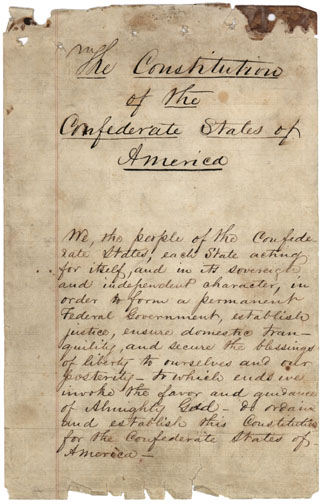 The Constitution
of the
Confederate States of
America
We, the people of the Confede-
rate States, each State acting
for itself, and in its sovereign
and independent character, in
order to form a permanent
Federal Government, establish
justice, ensure domestic tran-
quility, and secure the blessings
of liberty to ourselves and our
posterity - to which ends we
invoke the favor and guidance
of Almighty God - do ordain
and establish this Constitution
for the Confederate States of
America -